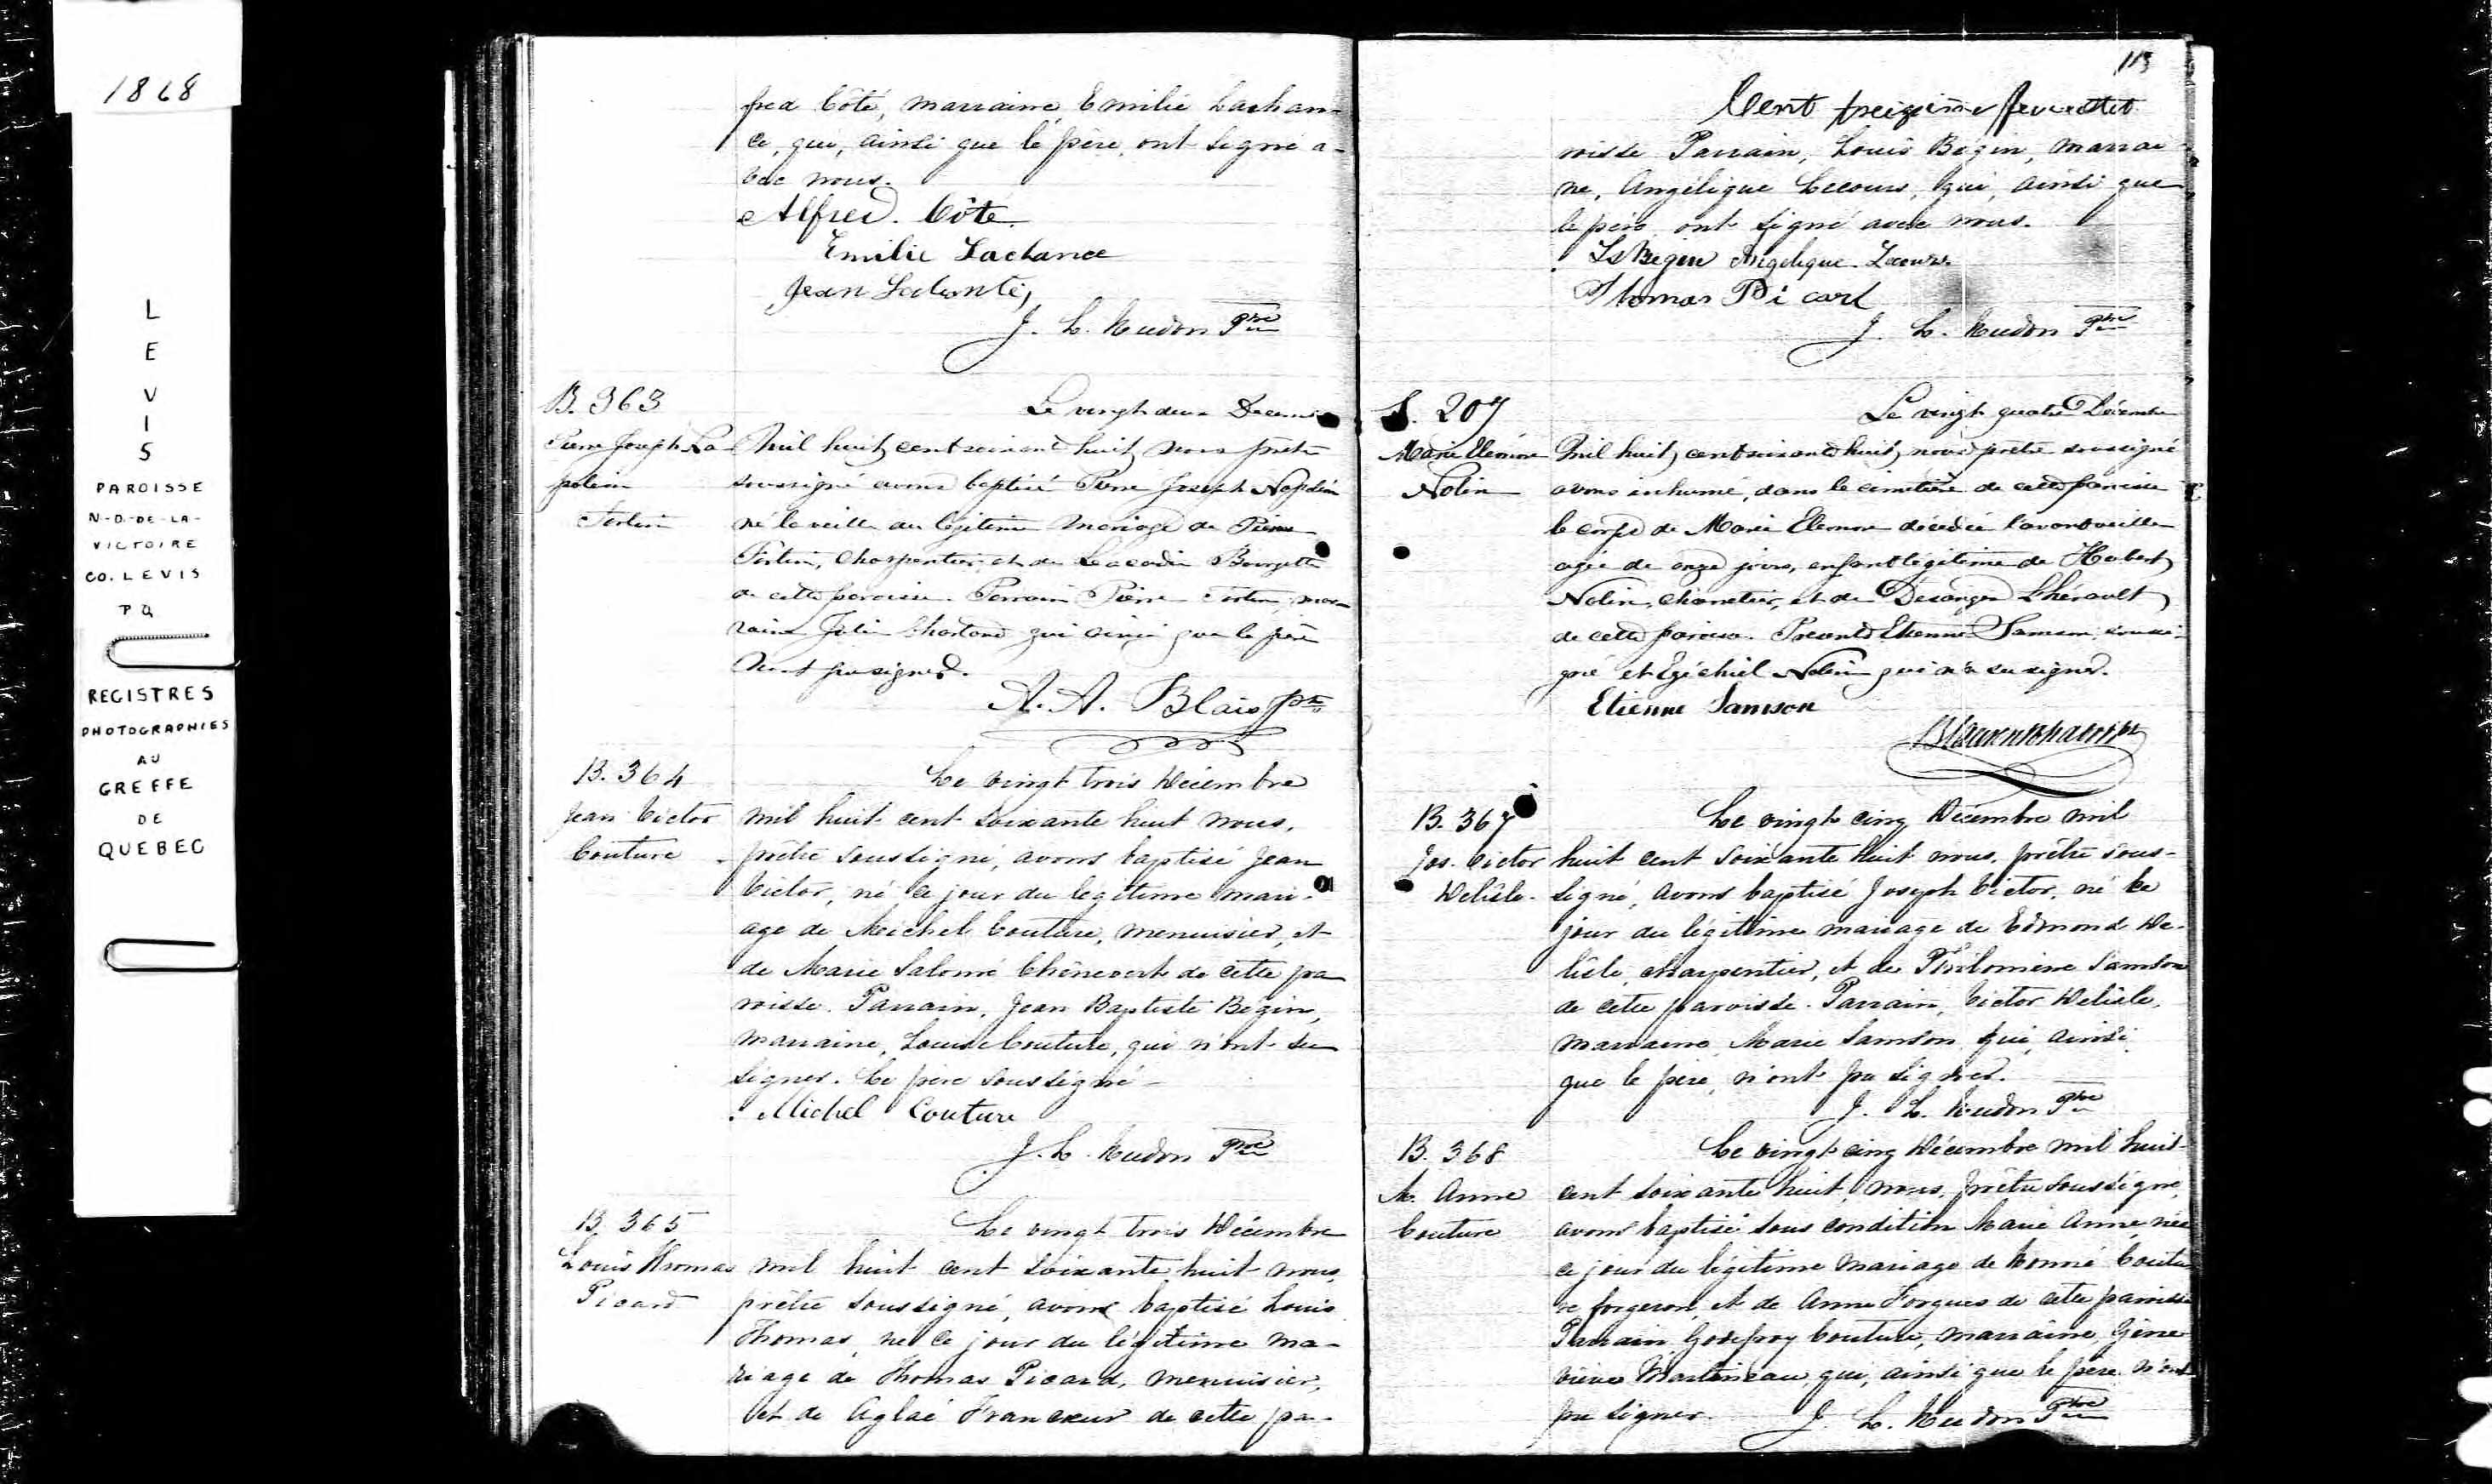 1868
L
E
V
I
S
PAROISSE
N-D-DE-LA-
VICTOIRE
CO. LEVIS
P Q
REGISTRES
PHOTOGRAPHIES
AU
GREFFE
DE
QUEBEC
fred Côté, marraine Emilie Lachan-
ce, qui, ainsi que le père, ont signé a-
vec nous.
Alfred. Côté.
Emilie Lachance
Jean
J. L. Hudon Ptre
B. 363
Pierre Joseph Na-
poléon
Fortin
Le vingt deux Décem
Mil huit cent soixante huit, nous prêtre
soussigné avons baptisé Pierre Joseph Napoléon
né la veille du légitime mariage de Pierre
Fortin, charpentier, et de Léocadie Bourgette
de cette paroisse. Parrain Pierre Fortin, mar-
raine Julie Chartand qui ainsi que le père
n'ont pu signer.
A. A. Blais ptre
B. 364
Jean Victor
Couture
Le vingt trois Décembre
mil huit cent soixante huit nous,
prêtre soussigné, avons baptisé Jean
Victor, né ce jour du légitime mari-
age de Michel Couture, menuisier, et
de Marie Salomé Chênevert de cette pa
roisse. Parrain, Jean Baptiste Bégin,
marraine, Louise Couture, qui n'ont su
signer. Le père soussigné -
Michel Couture
J. L. Hudon Ptre
B. 365
Louis Thomas
Picard
Le vingt trois Décembre
mil huit cent soixante huit nous,
prêtre soussigné, avons baptisé Louis
Thomas, né ce jour du légitime ma-
riage de Thomas Picard, menuisier,
et de Aglaé Francoeur de cette pa-
113
Cent treizième feuillet
roisse Parrain, Louis Bégin, marrai
ne, Angélique Lecours, qui, ainsi que
le père, ont signé avec nous.
Ls Bégin Angelique Lecours.
Thomas Picard
J. L. Hudon Ptre
S. 207
Marie Eléonore
Nolin
Le vingt quatre Décembre
Mil huit cent soixante huit, nous prêtre soussigné
avons inhumé, dans le cimetière de cette paroisse
le corps de Marie Eléonore décédée l'avant veille
agée de onze jours, enfant légitime de Hubert
Nolin, charretier, et de Desanges Lhérault
de cette paroisse. Présents Etienne Samson, soussi-
gné et Ezéchiel Nolin qui n'a su signer.
Etienne Samson
B. 367
Jos. Victor
Delisle-
Le vingt cinq Décembre mil
huit cent soixante huit nous, prêtre sous-
signé, avons baptisé Joseph Victor, né ce
jour du légitime mariage de Edmond De-
lisle, charpentier, et de Philomène Samson
de cette paroisse. Parrain, Victor Delisle,
marraine, Marie Samson, qui, ainsi
que le père, n'ont pu signer.
J. L. Hudon Ptre
B. 368
M. Anne
Couture
Le vingt cinq Décembre mil huit
cent soixante huit, nous, prêtre soussigné,
avons baptisé sous condition Marie Anne, née
ce jour du légitime mariage de Honoré Coutu
re forgeron, et de Anne Forgues de cette paroisse
Parrain, Godefroy Couture, marraine, Gène
viève Martineau, qui, ainsi que le père n'ont
pu signer. J. L. Hudon Ptre